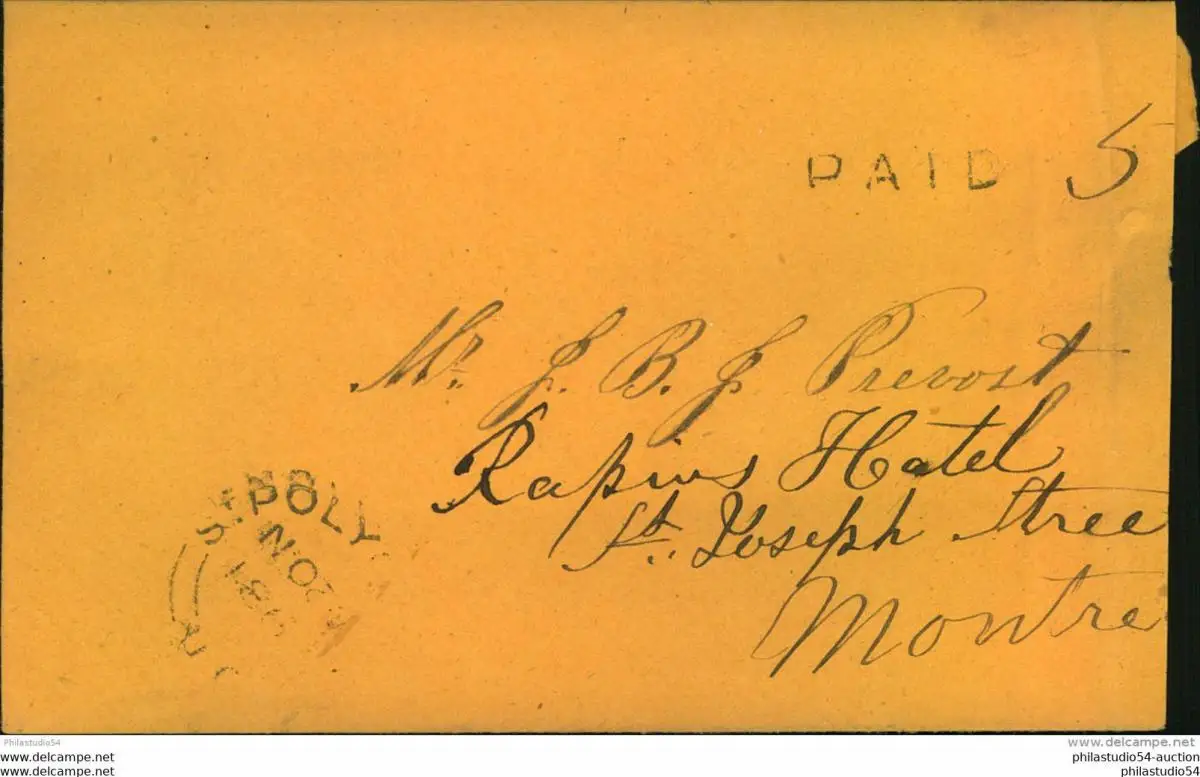 PAID 5
Mr. J. B. J. Prevost
Rapins Hotel
St. Joseph Stree
Montre
POLY
NO 20
Philastudio54
www.delcampe.net
www.delcampe.net
www.delcampe.net
philastudio54-auction
philastudio54